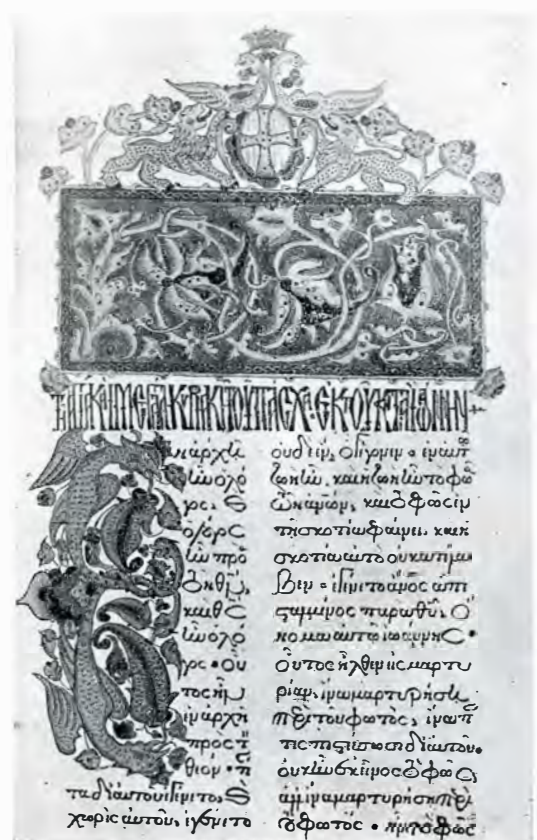 Τῇ ἁγίᾳ κ(αὶ) μεγάλ(ῃ) κυριακῇ τοῦ πάσχα· ἐκ τοῦ κατὰ ἰωάννην
Ἐν ἀρχῆ
ἦν ὁ λό
γος, καὶ
ὁ λόγος
ἦν πρὸ(ς)
τὸν θν,
καὶ θς
ἦν ὁ λό
γος· οὗ
τος ἦν
ἐν ἀρχῆ
πρὸς τ(ὸν)
θεόν· πάν
τα δι αὐτοῦ ἐγένετο, καὶ
χωρὶς αὐτοῦ, ἐγένετο
οὐδὲ ἕν, ὃ γέγονεν· ἐν αὐτῶ
ζωὴ ἦν, καὶ ἡ ζωὴ ἦν τὸ φῶς
τῶν ἀνῶν, καὶ τὸ φῶς ἐν
τῆ σκοτία φαίνει, καὶ ἡ
σκοτία αὐτὸ οὐ κατέλα
βεν· ἐγένετο ἄνος ἀπε
σταλμένος παρὰ θυ, ὄ
νομα αὐτῶ ἰωάννης·
οὗτος ἦλθεν εἰς μαρτυ
ρίαν, ἵνα μαρτυρήση
περὶ τοῦ φωτός, ἵνα πάν
τες πιστεύσωσι δι αὐτοῦ·
οὐκ ἦν ἐκεῖνος τὸ φῶς,
ἀλλ ἵνα μαρτυρήση περὶ
τοῦ φωτός· ἦν τὸ φῶς